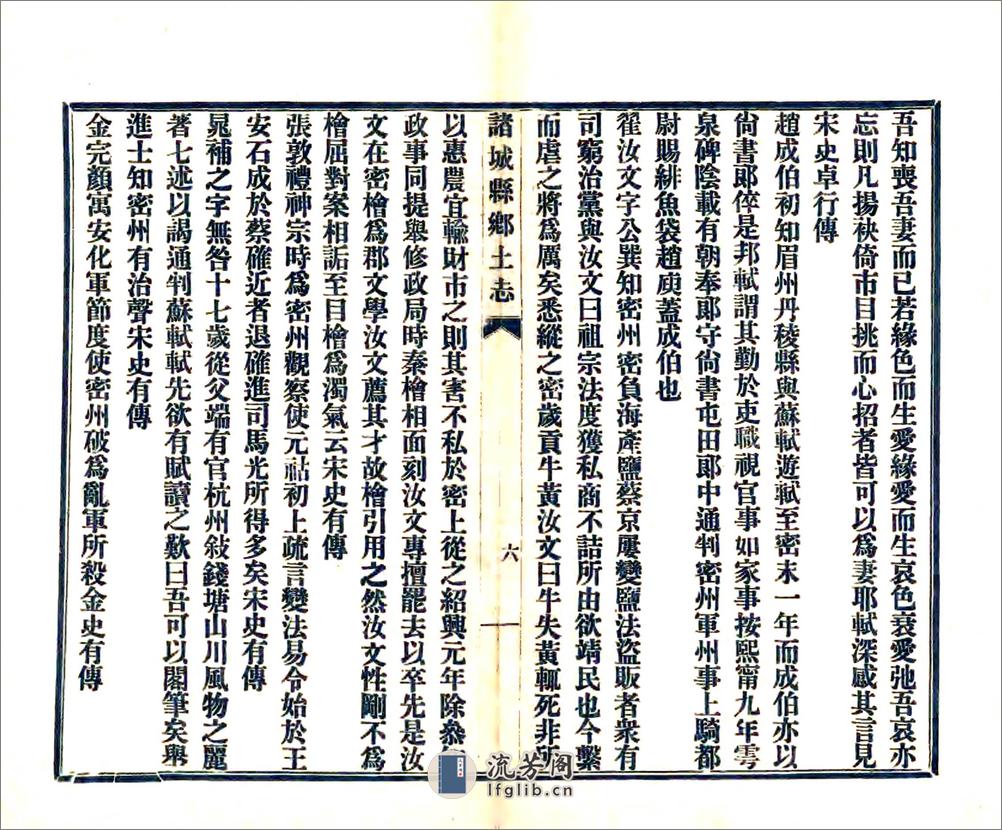 吾知喪吾妻而已若緣色而生愛緣愛而生哀色衰愛弛吾哀亦
忘則凡揚袂倚市目挑而心招者皆可以爲妻耶軾深感其言見
宋史卓行傳
趙成伯初知眉州丹稜縣與蘇軾遊軾至密末一年而成伯亦以
尙書郞倅是邦軾謂其勤於吏職視官事如家事按熙甯九年雩
泉碑陰載有朝奉郞守尙書屯田郞中通判密州軍州事上騎都
尉賜緋魚袋趙庾蓋成伯也
翟汝文字公巽知密州密負海產鹽蔡京屢變鹽法盜販者衆有
司窮治黨與汝文曰祖宗法度獲私商不詰所由欲靖民也今繫
而虐之將爲厲矣悉縱之密歲貢牛黃汝文曰牛失黃輒死非所
諸城縣鄉土志
六
以惠農宜輸財市之則其害不私於密上從之紹興元年除參知
政事同提舉修政局時秦檜相面刻汝文專擅罷去以卒先是汝
文在密檜爲郡文學汝文薦其才故檜引用之然汝文性剛不爲
檜屈對案相詬至目檜爲濁氣云宋史有傳
張敦禮神宗時爲密州觀察使元祜初上疏言變法易令始於王
安石成於蔡確近者退確進司馬光所得多矣宋史有傳
晁補之字無咎十七歲從父端有官杭州敍錢塘山川風物之麗
著七述以謁通判蘇軾軾先欲有賦讀之歎曰吾可以閣筆矣舉
進士知密州有治聲宋史有傳
金完顏寓安化軍節度使密州破爲亂軍所殺金史有傳
流芳閣
lfglib.cn